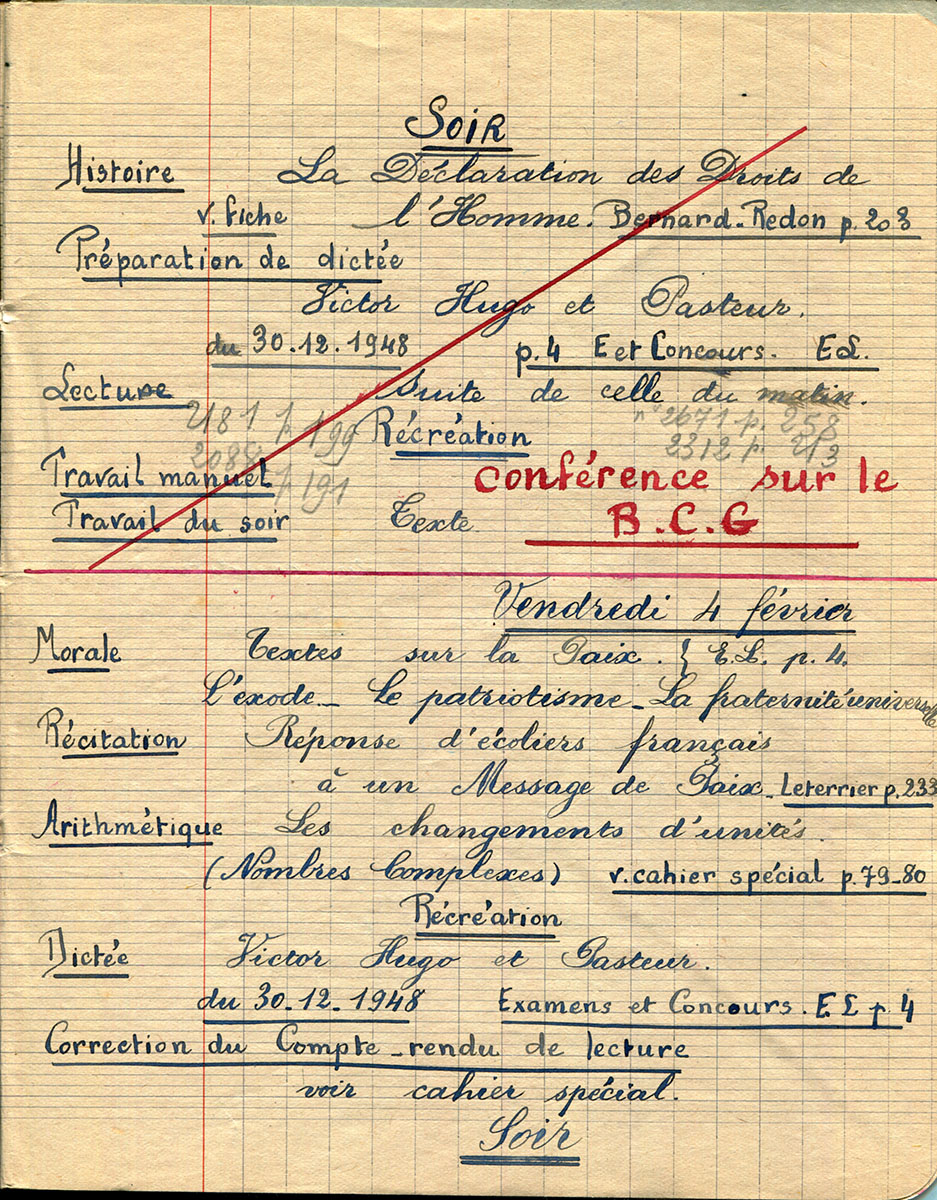 Soir
Histoire La Déclaration des Droits de
v. fiche l'Homme. Bernard-Redon p. 203
Préparation de dictée
Victor Hugo et Pasteur.
du 30.12.1948 p.4 E et Concours. EL.
Lecture Suite de celle du matin.
2181 p. 199 Récréation n° 2671 p. 258
2088 p 191 2312 p. 213
Travail manuel conférence sur le
Travail du soir Texte B.C.G
Vendredi 4 février
Morale Textes sur la Paix. } E.L. p. 4.
L'éxode_ Le patriotisme_La fraternité universelle
Récitation Réponse d'écoliers français
à un Message de Paix_Leterrier p.233
Arithmétique Les changements d'unités.
(Nombres Complexes) v. cahier spécial p.79_80
Récréation
Dictée Victor Hugo et Pasteur.
du 30_12_1948 Examens et Concours. EL p 4
Correction du Compte_rendu de lecture
voir cahier spécial.
Soir